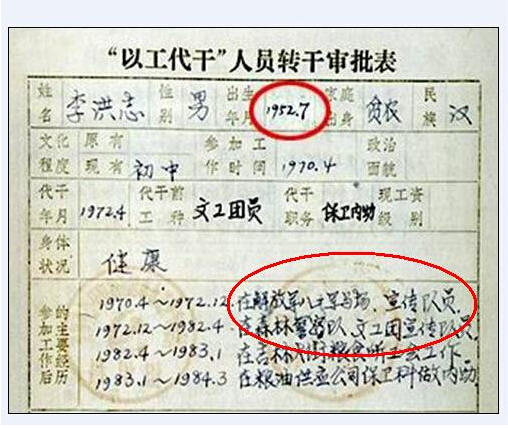 “以工代干”人员转干审批表
姓名 李洪志 性别 男 出生年月 1952.7 家庭出身 贫农 民族 汉
文化程度 原有 现有 初中 参加工作时间 1970.4 政治面貌
代干年月 1972.4 代干前工种 文工团员 代干职务 保卫内勤 现工资级别
身体状况 健康
参加工作后的主要经历
1970.4～1972.12 在解放军八一军马场、宣传队员
1972.12～1982.4 在森林警察队、文工团宣传队员
1982.4～1983.1 在吉林粮食工会工作
1983.1～1984.3 在粮油供应公司保卫科做内勤